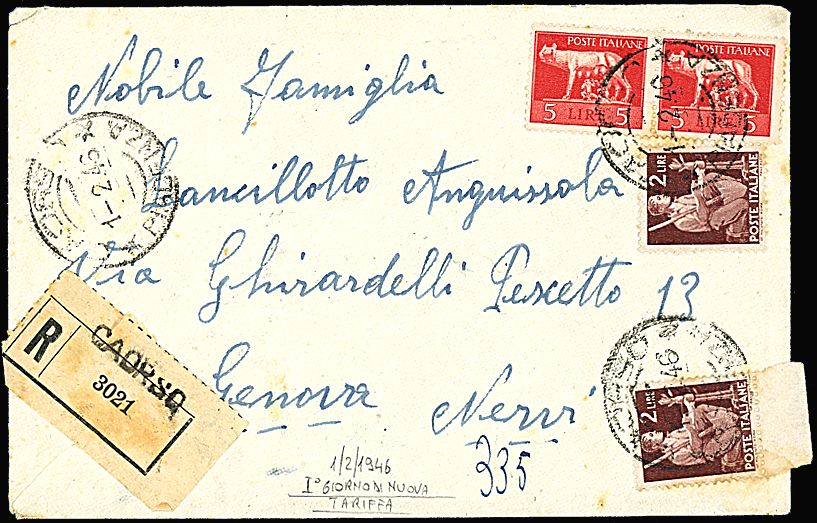 POSTE ITALIANE
5 LIRE 5
POSTE ITALIANE
5 LIRE 5
Nobile Famiglia
Lancillotto Anguissola
Via Ghirardelli Pescetto 13
Genova Nervi
2 LIRE
POSTE ITALIANE
2 LIRE
POSTE ITALIANE
1-2.46
R
CAORSO
3021
335
1/2/1946
I° GIORNO DI NUOVA
TARIFFA